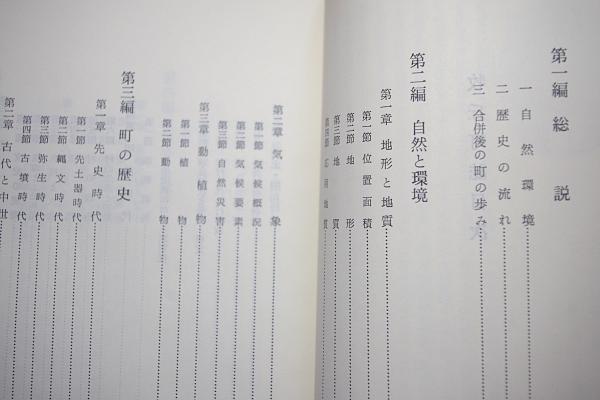 第一編 総説
一 自然環境
二 歴史の流れ
三 合併後の町の歩み
第二編 自然と環境
第一章 地形と地質
第一節 位置面積
第二節 地形
第三節 地質
第四節 応用地質
第二章 気象
第一節 気候概況
第二節 気候要素
第三節 自然災害
第三章 動植物
第一節 植物
第二節 動物
第三編 町の歴史
第一章 先史時代
第一節 先土器時代
第二節 縄文時代
第三節 弥生時代
第四節 古墳時代
第二章 古代と中世